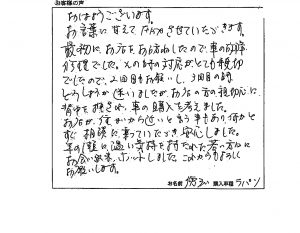 お客様の声
おはようございます。
お言葉に甘えてTELさせていただきます。
最初に、お店をお訪ねしたので、車の故障
修理でした。その時の対応がとても親切
でしたので、2回目もお願いし、3回目の時
どうしようか迷いましたが、お店の方の親切心に
背中を押され、車の購入を考えました。
お店が、近いからせいと言う事もあり、何かと
すぐ相談に乗っていただき安心しました。
車の
に、温い気持を持たれた若い方に
お会い出来、ホットしました。これからもよろしく
お願いします。
お名前
購入車種 ラパン